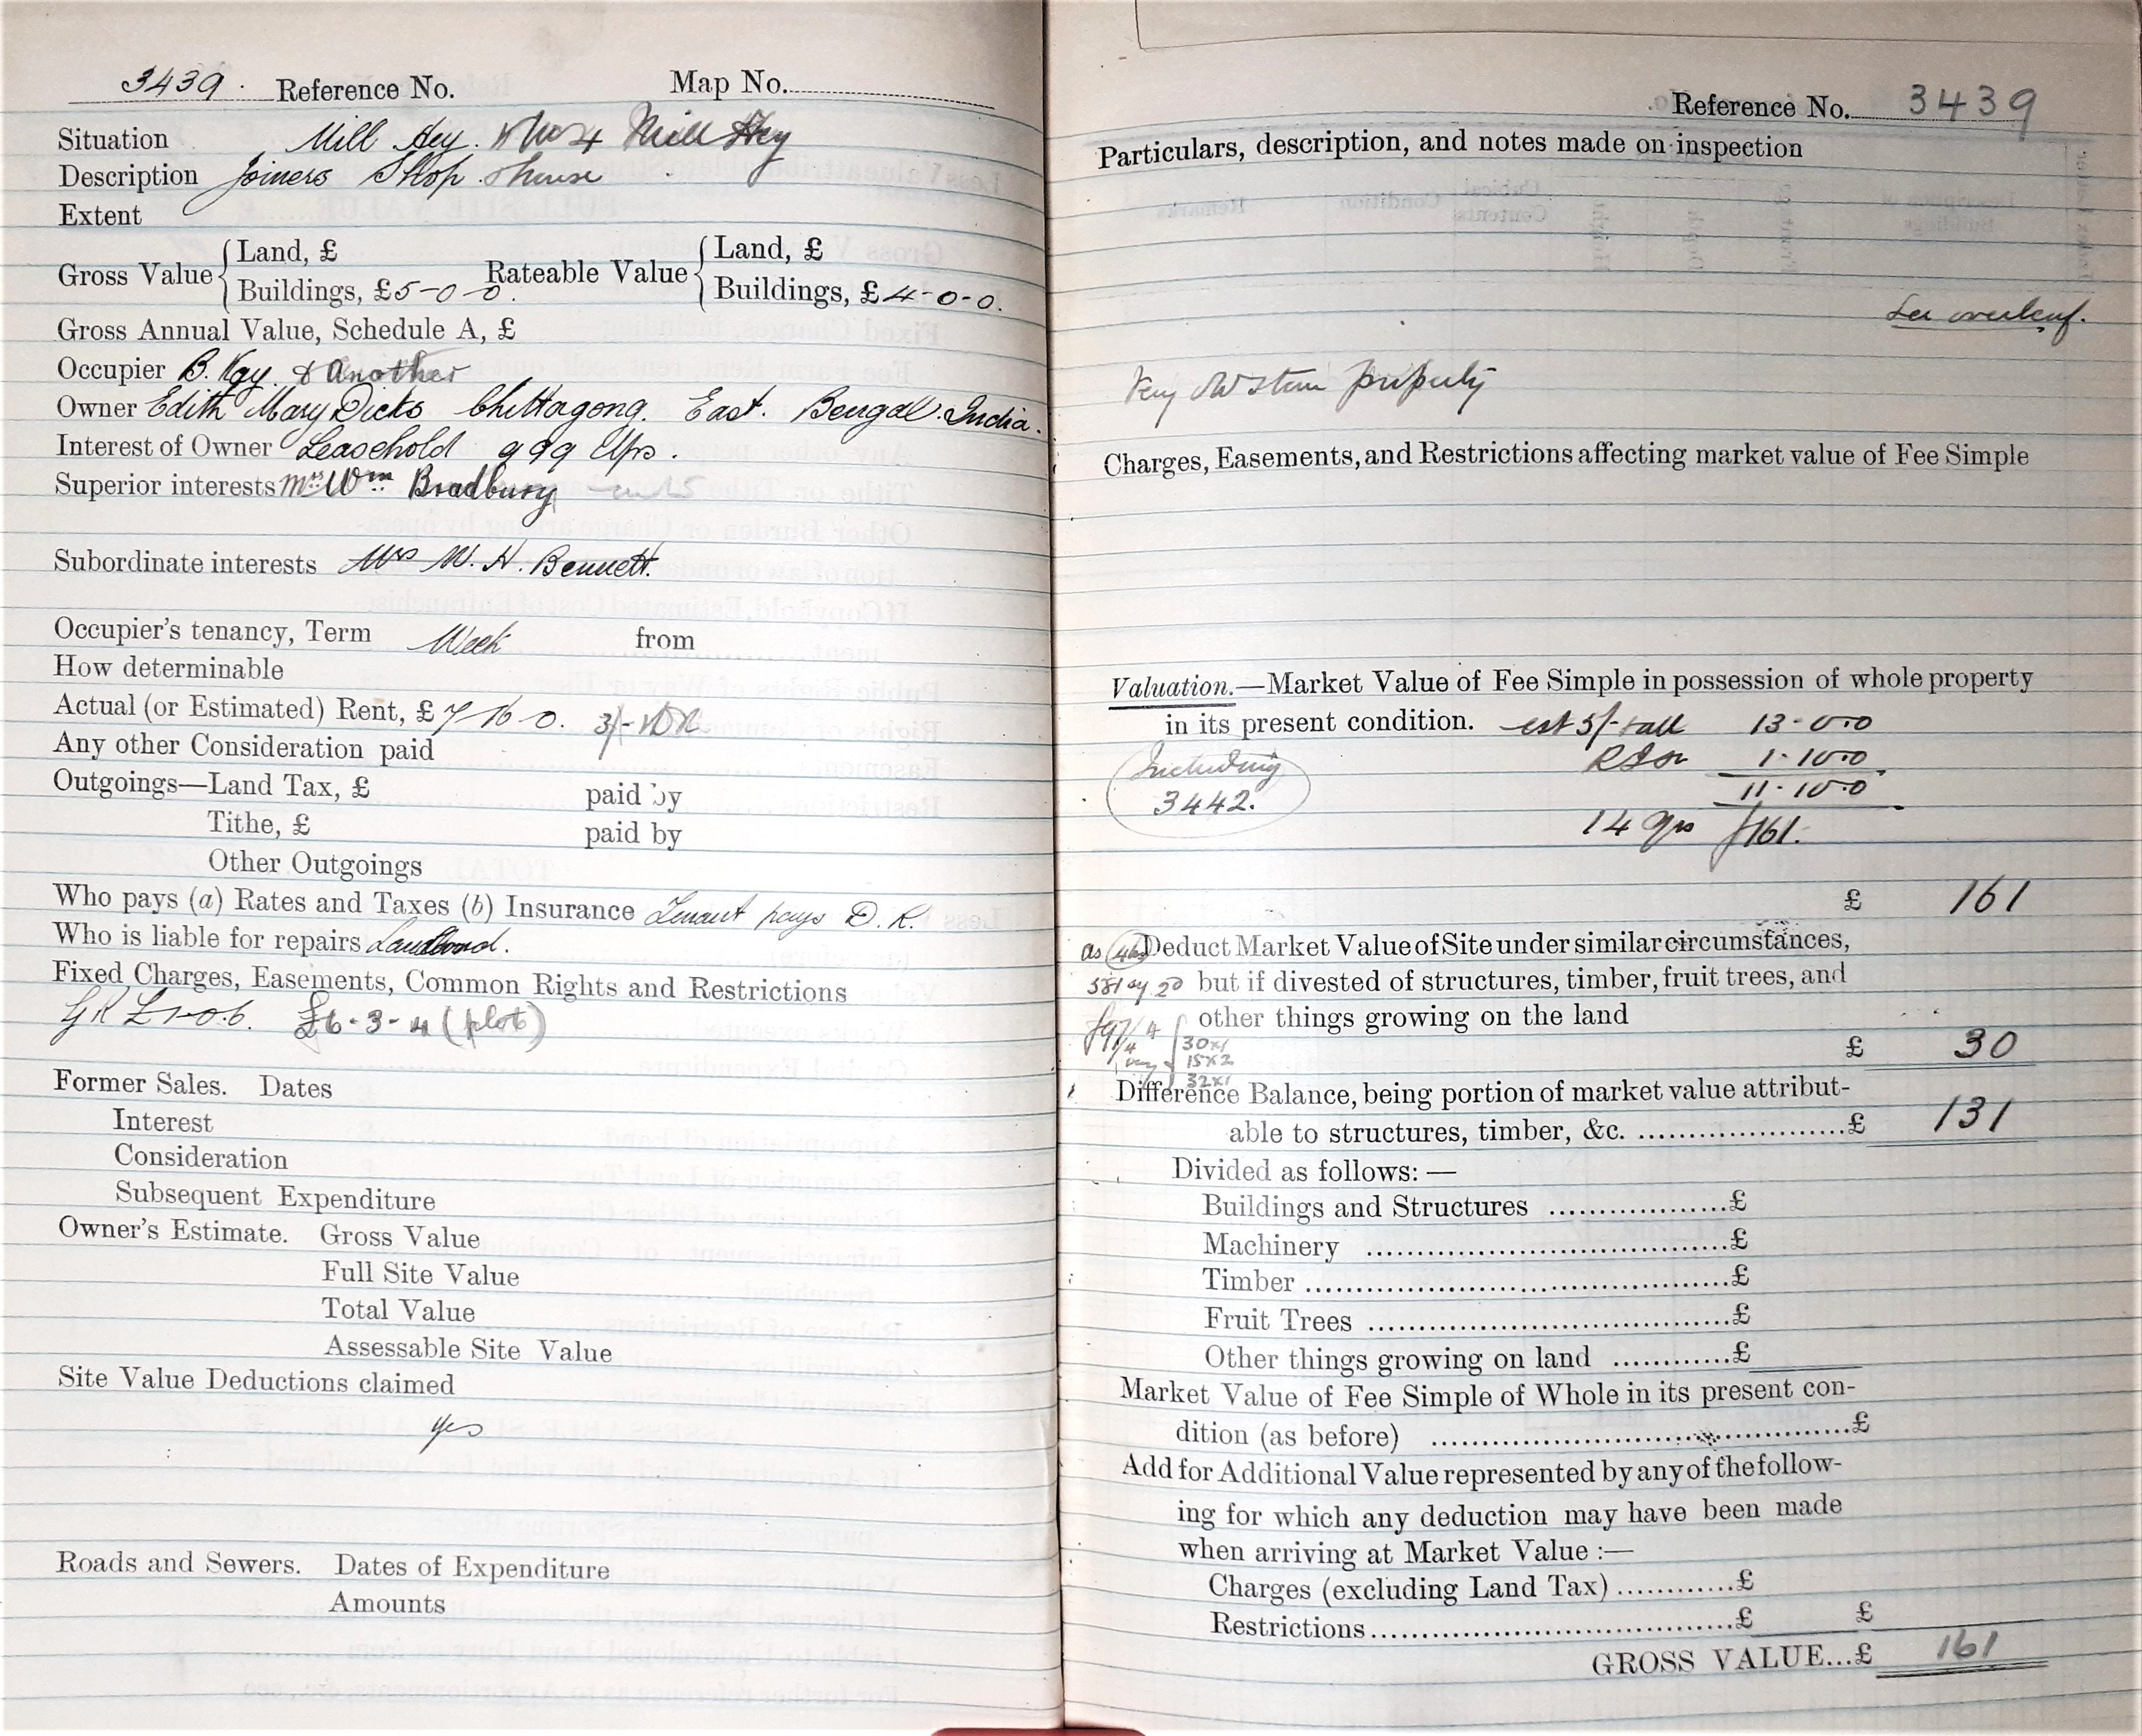 3439. Reference No. Map No.
Situation Mill Hey. & No 4 Mill Hey
Description Joiners Shop. & house
Extent
Gross Value { Land, £
Buildings, £5-0-0. Rateable Value { Land, £
Buildings, £4-0-0.
Gross Annual Value, Schedule A, £
Occupier B. Kay. & Another
Owner Edith Mary Dicks Chittagong. East. Bengal. India.
Interest of Owner Leasehold 999 Yrs.
Superior interests Mrs Wm Bradbury
Subordinate interests Mrs W. H. Bennett.
Occupier's tenancy, Term Week from
How determinable
Actual (or Estimated) Rent, £7-16-0. 3/-
Any other Consideration paid
Outgoings—Land Tax, £ paid by
Tithe, £ paid by
Other Outgoings
Who pays (a) Rates and Taxes (b) Insurance Tenant pays D. R.
Who is liable for repairs Landlord.
Fixed Charges, Easements, Common Rights and Restrictions
GR £1-0-6. £6-3-4 (plot)
Former Sales. Dates
Interest
Consideration
Subsequent Expenditure
Owner's Estimate. Gross Value
Full Site Value
Total Value
Assessable Site Value
Site Value Deductions claimed
yes
Roads and Sewers. Dates of Expenditure
Amounts
Reference No. 3439
Particulars, description, and notes made on inspection
See overleaf.
Very old stone property
Charges, Easements, and Restrictions affecting market value of Fee Simple
Valuation.—Market Value of Fee Simple in possession of whole property
in its present condition. est 5/- 13-0-0
Including 1-10-0
3442. 11-10-0
14 yrs £161.
£ 161
as Deduct Market Value of Site under similar circumstances,
581 20 but if divested of structures, timber, fruit trees, and
other things growing on the land
30x1
15x2
32x1
£ 30
Difference Balance, being portion of market value attribut-
able to structures, timber, &c. £ 131
Divided as follows: —
Buildings and Structures £
Machinery £
Timber £
Fruit Trees £
Other things growing on land £
Market Value of Fee Simple of Whole in its present con-
dition (as before) £
Add for Additional Value represented by any of the follow-
ing for which any deduction may have been made
when arriving at Market Value :—
Charges (excluding Land Tax) £
Restrictions £ £
GROSS VALUE...£ 161